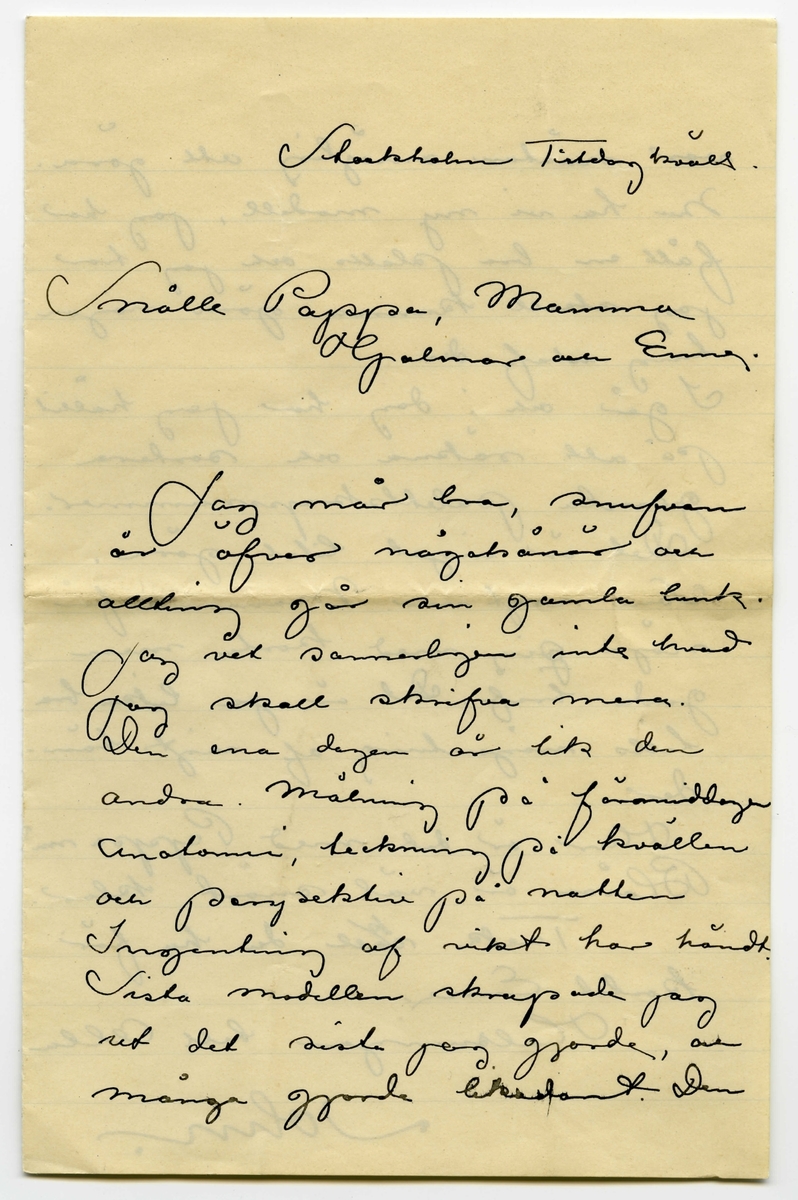 Stockholm Tisdag kväll.
Snälla Pappa, Mamma
Hjalmar och Erna.
Jag mår bra, snufvan
är öfver någotsånär och
allting går sin gamla lunk.
Jag vet sannerligen inte hvad
jag skall skrifva mera.
Den ena dagen är lik den
andra. Målning på förmiddagen
anatomi, teckning på kvällen
och perspektiv på natten
Ingenting af vikt har händt.
Sista modellen skrapade jag
ut det sista jag gjorde, och
många gjorde likadant. Den